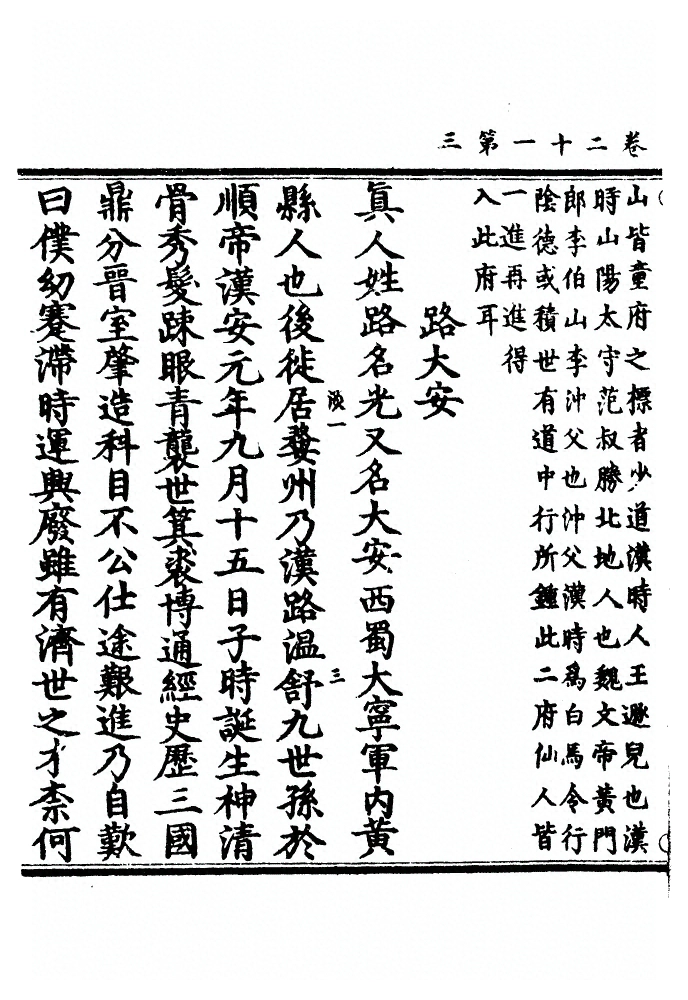 卷二十一第三
山皆童府之標者少道漢時人王遜兒也漢
時山陽太守范叔勝北地人也魏文帝黃門
郎李伯山李沖父也沖父漢時爲白馬令行
陰德或積世有道中行所鍾此二府仙人皆
一進再進得
入此府耳
路大安
眞人姓路名光又名大安西蜀大寧軍内黃
漢一
三
縣人也後徙居婺州乃漢路温舒九世孫於
順帝漢安元年九月十五日子時誕生神清
骨秀髮踈眼青襲世箕裘博通經史歷三國
鼎分晉室肇造科目不公仕途艱進乃自歎
曰僕幼蹇滯時運興廢雖有濟世之才柰何